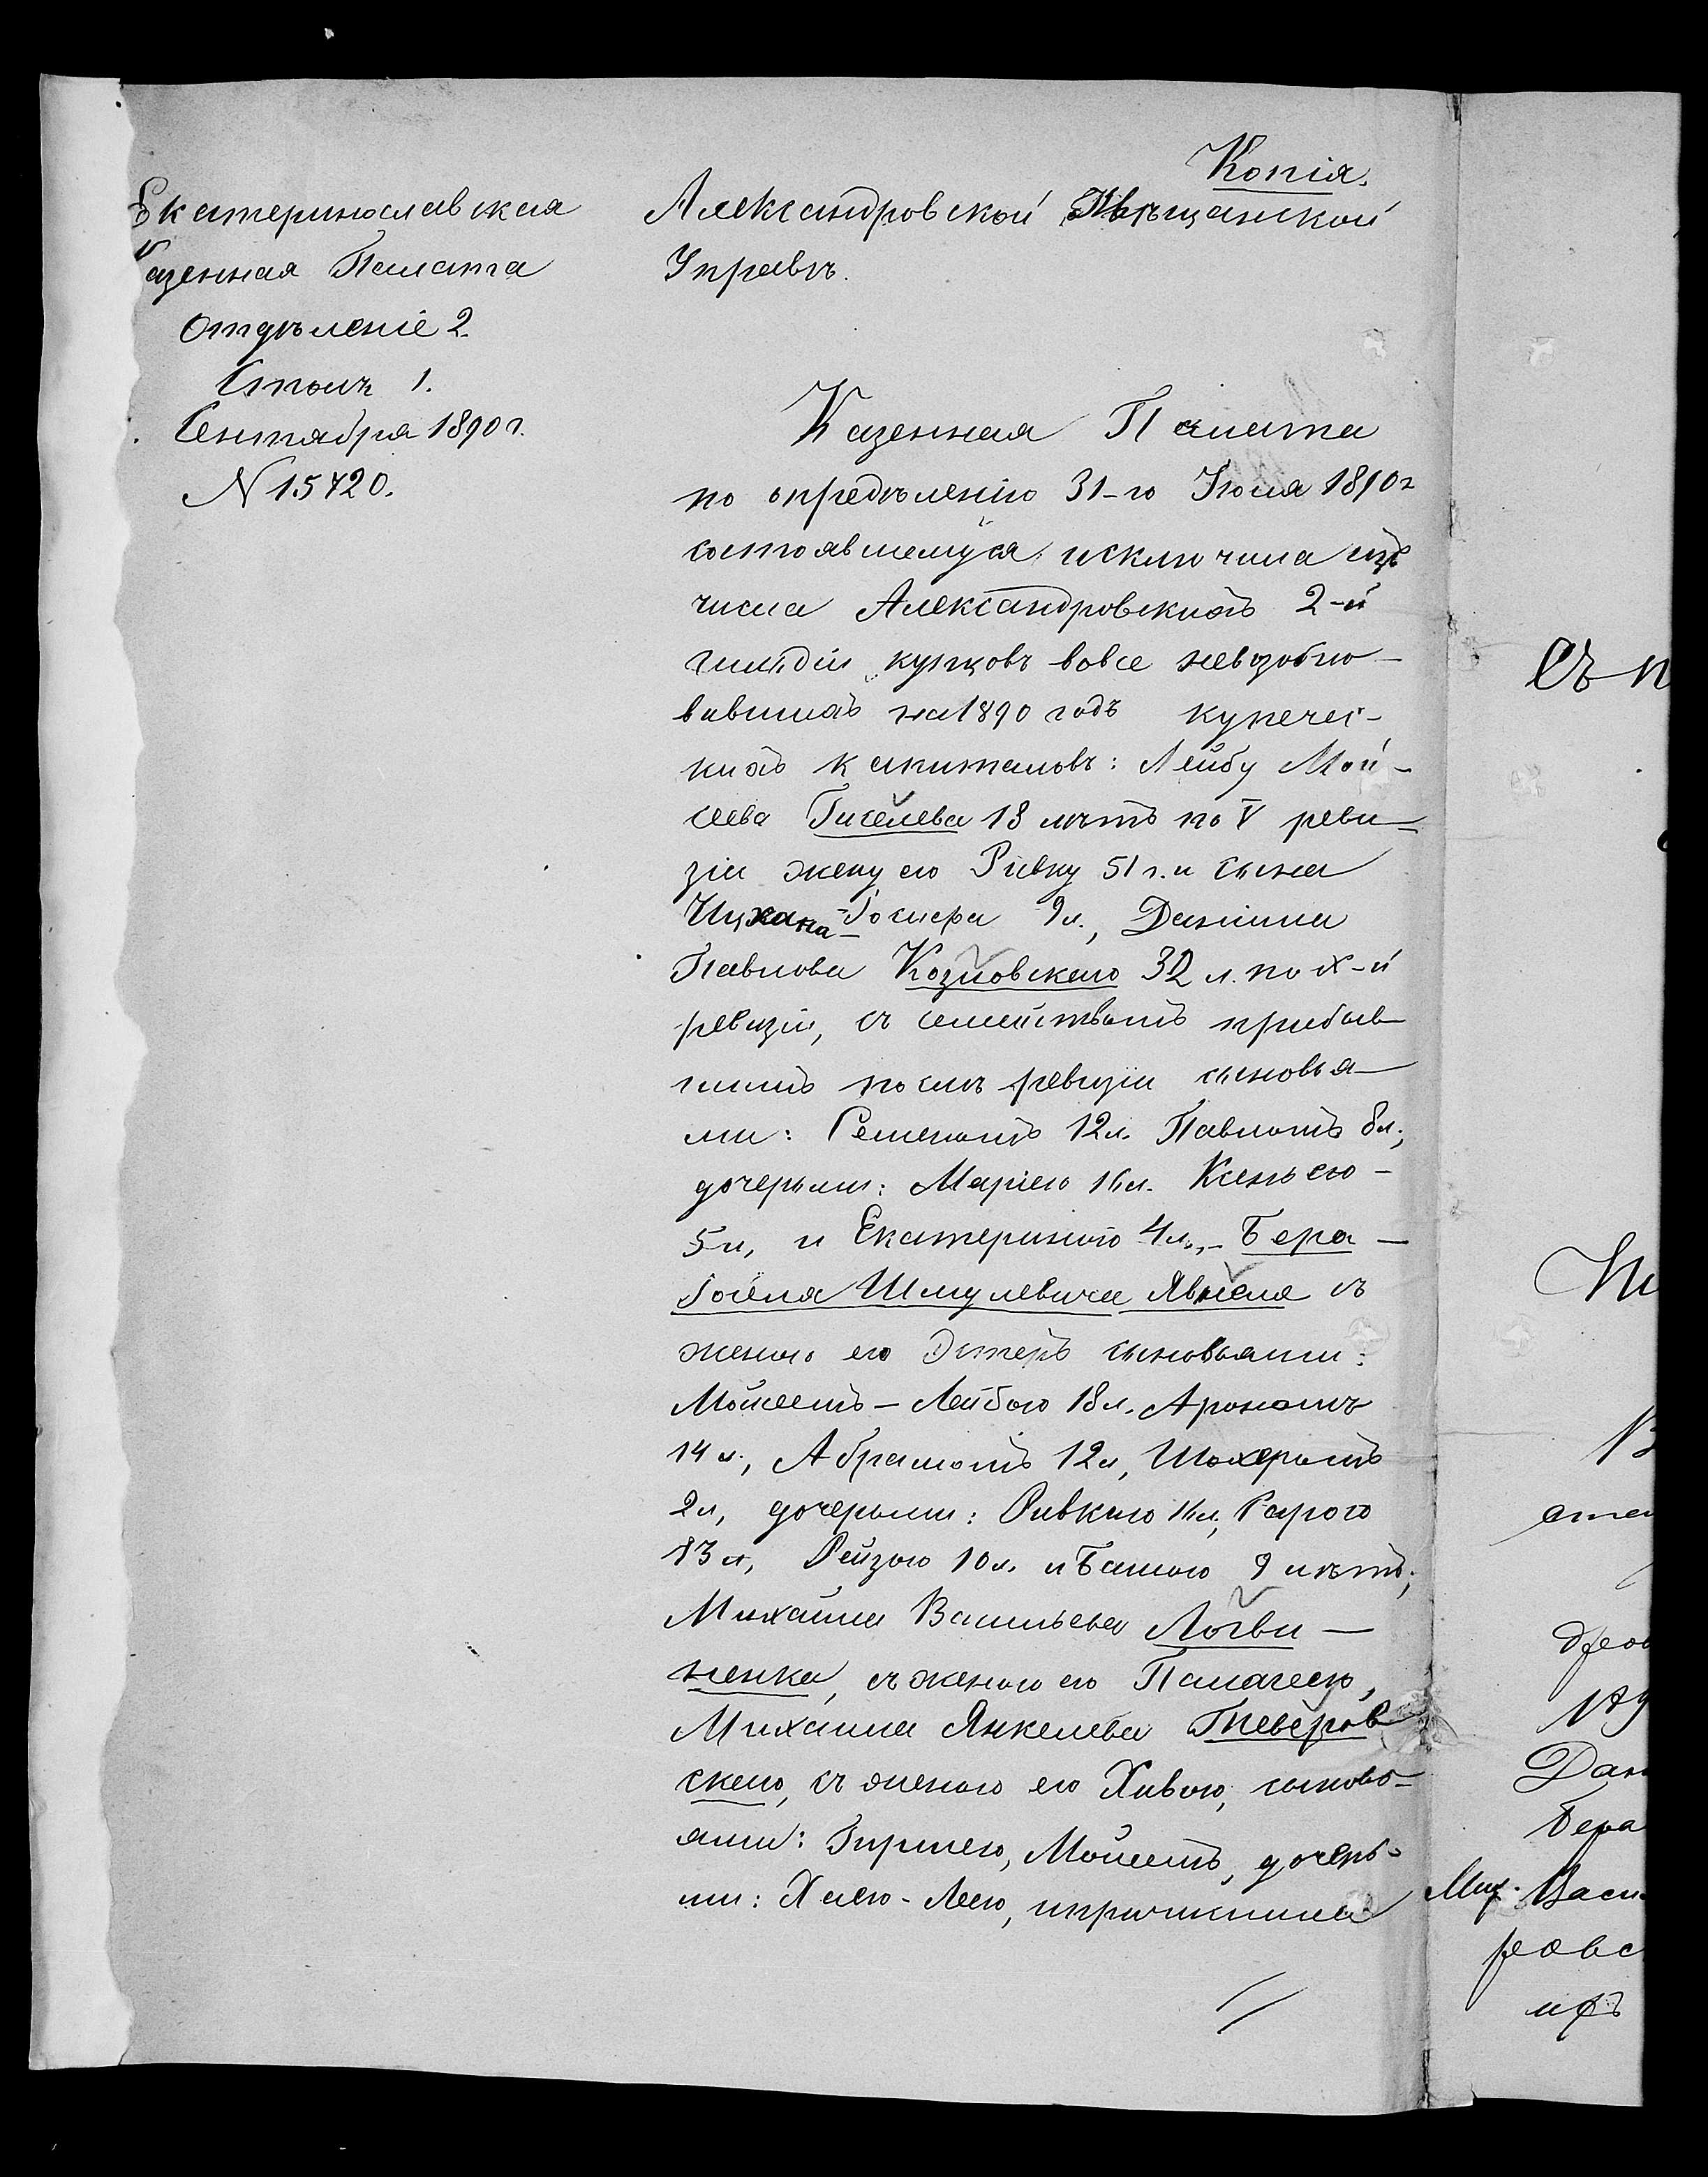 Копія.
Екатеринославская
Казенная Палата
Отдѣленіе 2.
Столъ 1.
Сентября 1890 г.
N 15420.
Александровской Мѣщанской
Управѣ.
Казенная Палата
по опредѣленію 31-го Іюля 1890 г
состоявшемуся, исключила изъ
числа Александровскихъ 2-й
гильдіи купцовъ вовсе невозобно-
вившихъ на 1890 годъ купечес-
кихъ капиталовъ: Лейбу Мой-
сеева Гиселева 18 лѣтъ по V реви-
зіи жену его Ривку 51 г. и сына
9 л., Даніила
Павлова Козловскаго 32 л. по X-й
ревизіи, съ семействомъ прибыв-
шимъ послѣ ревизіи сыновья-
ми: Семеномъ 12 л. Павломъ 8 л.,
дочерьми: Маріею 16 л. Ксеньею
5 л, и Екатериною 4 л., - Бера -
Іоселя Шмулевича съ
женою его Эстеръ сыновьями:
Мойсеемъ - Лейбою 18 л. Арономъ
14 л., Абрамомъ 12 л, Шохеромъ
2 л, дочерьми: Ривкою 16 л, Сарою
13 л, Рейзою 10 л. и Башею 9 лѣтъ;
Михаила Васильева Логви-
ненка, съ женою его Палагеею,
Михаила Янкелева Тверов
скаго, съ женою его Хивою, сыновь-
ями: Гиршею, Мойсеемъ, дочерь-
ми: Хаею - Леею, и причислила
Съ п
Дан
Бера
Мих. Васи
ровс